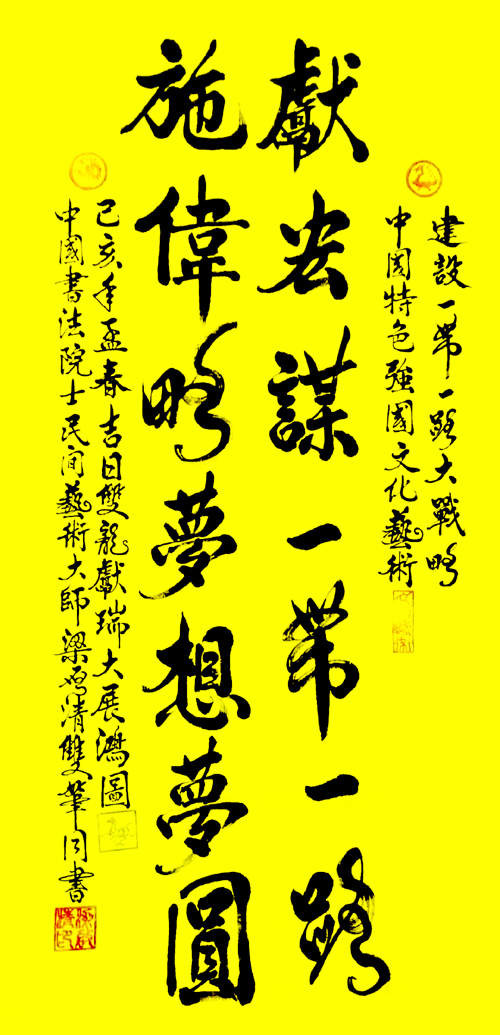 建設一帶一路大戰略
中國特色強國文化藝術
獻宏謀一帶一路
施偉略夢想夢圓
己亥年孟春吉日雙龍獻瑞大展鴻圖
中國書法院士民间藝術大師梁 清雙筆同書